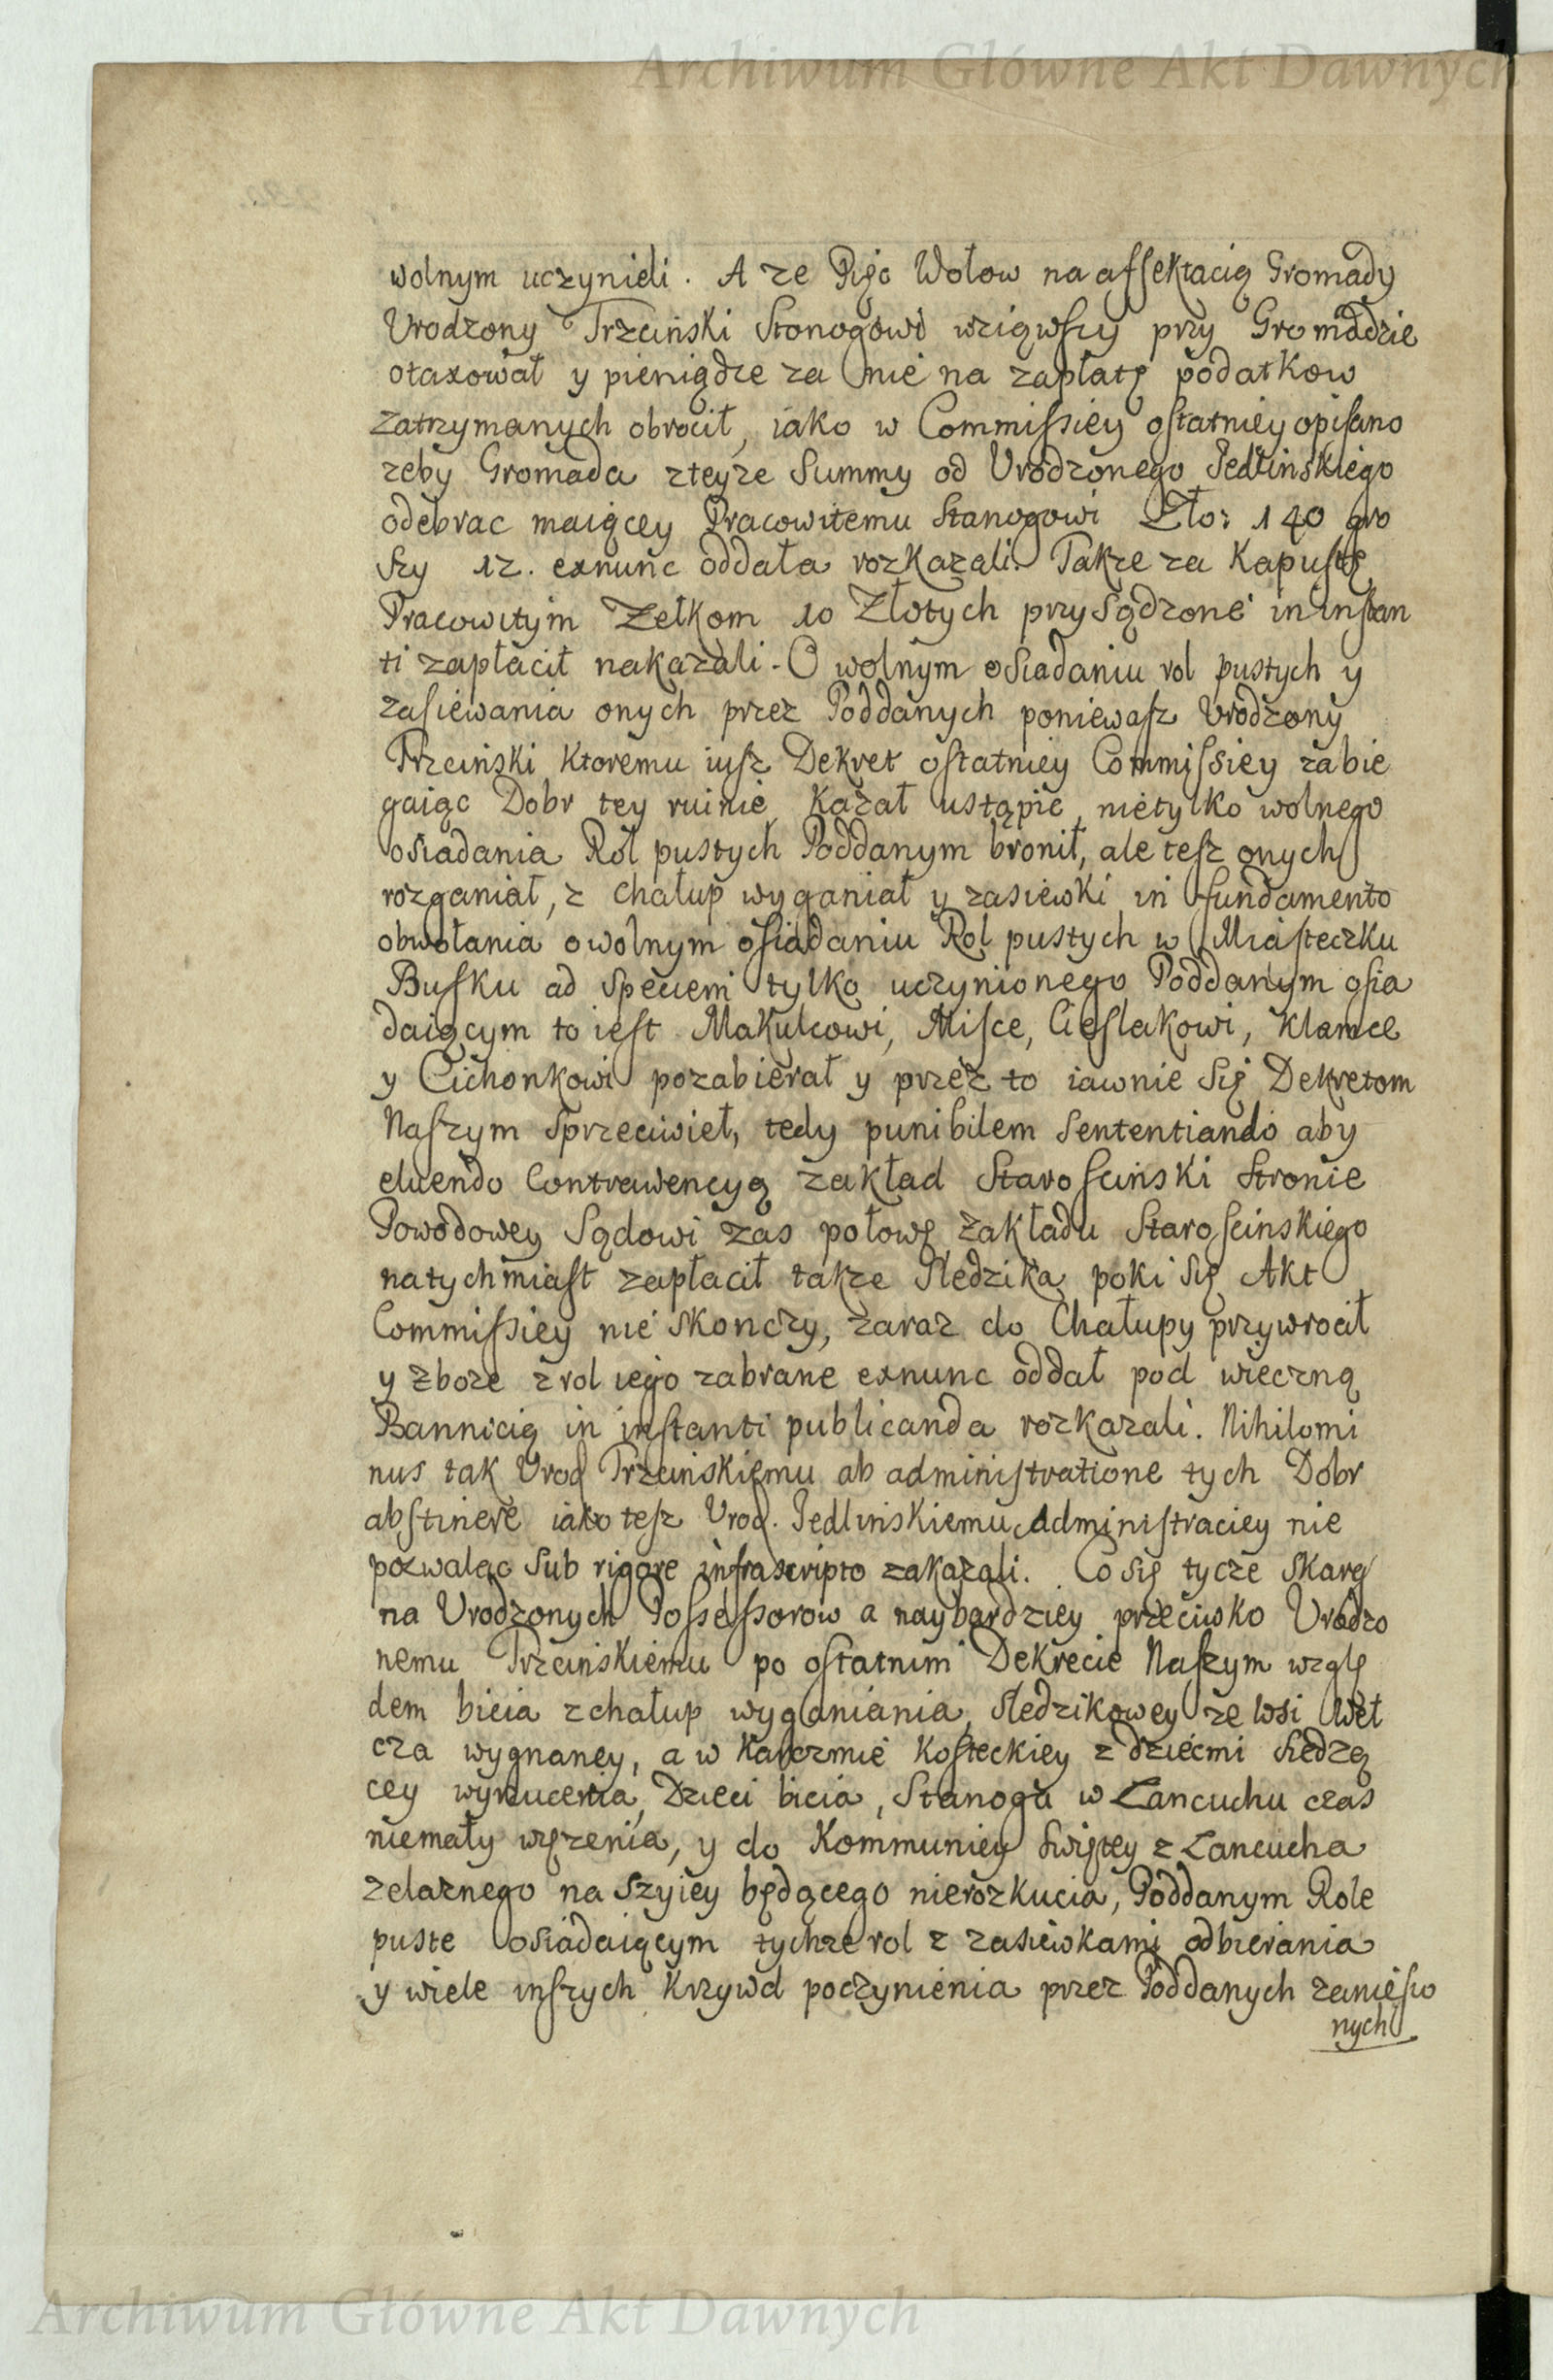 Archiwum Główne Akt Dawnych
wolnym uczynieli. A ze Pięc Wołow na affektacią Gromady
Urodzony Trzciński Stonogowi wziąwszy przy Gromadzie
otaxował y pieniądze za nie na zapłatę podatkow
zatrzymanych obrocił, iako w Commissiey ostatniey opisano
zeby Gromada zteyze Summy od Urodzonego Jedlińskiego
odebrac maiącey Pracowitemu Stanogowi Zło: 140 gro
szy 12. exnunc oddała rozkazali. Takze za Kapustę
Pracowitym Zełkom 10 Złotych przysądzone in instan
ti zapłacił nakazali. O wolnym osiadaniu rol pustych y
zasiewania onych przez Poddanych poniewasz Urodzony
Trzciński ktoremu iusz Dekret ostatniey Commissiey zabie
gaiąc Dobr tey ruinie kazał ustąpic, nietylko wolnego
osiadania Rol pustych Poddanym bronił, ale tesz onych
rozganiał, z chałup wyganiał y zasiewki in fundamento
obwołania o wolnym osiadaniu Rol pustych w Miasteczku
Busku ad speciem tylko uczynionego Poddanym osia
daiącym to iest Makulcowi, Misce, Cieslakowi, Klamce
y Cichonkowi pozabierał y przez to iawnie się Dekretom
Naszym sprzeciwieł, tedy punibilem sententiando aby
eluendo Contrawencyą zakład Staroscinski Stronie
Powodowey Sądowi zas połowę zakładu Staroscinskiego
natychmiast zapłacił takze Sledzika poki się Akt
Commissiey nie skonczy, zaraz do Chałupy przywrocił
y zboze z rol iego zabrane exnunc oddał pod wieczną
Bannicią in instanti publicanda rozkazali. Nihilomi
nus tak Urod Trzcinskiemu ab administratione tych Dobr
abstinere iako tesz Urod. Jedlinskiemu Administraciey nie
pozwalac sub rigore infrascripto zakazali. Co się tycze skarg
na Urodzonych Possessorow a naybardziey przeciwko Urodzo
nemu Trzcinskiemu po ostatnim Dekrecie Naszym wzglę
dem bicia z chałup wyganiania, Sledzikowey ze wsi Weł
cza wygnaney, a w Karczmie Kosteckiey z dziecmi siedzą
cey wyrzucenia, Dzieci bicia, Stanoga w Łancuchu czas
niemały węzenia, y do Kommuniey Swiętey z Łancucha
zelaznego na szyiey będącego nierozkucia, Poddanym Role
puste osiadaiącym tychze rol z zasiewkami odbierania
y wiele inszych krzywd poczynienia przez Poddanych zaniesio
nych
Archiwum Główne Akt Dawnych